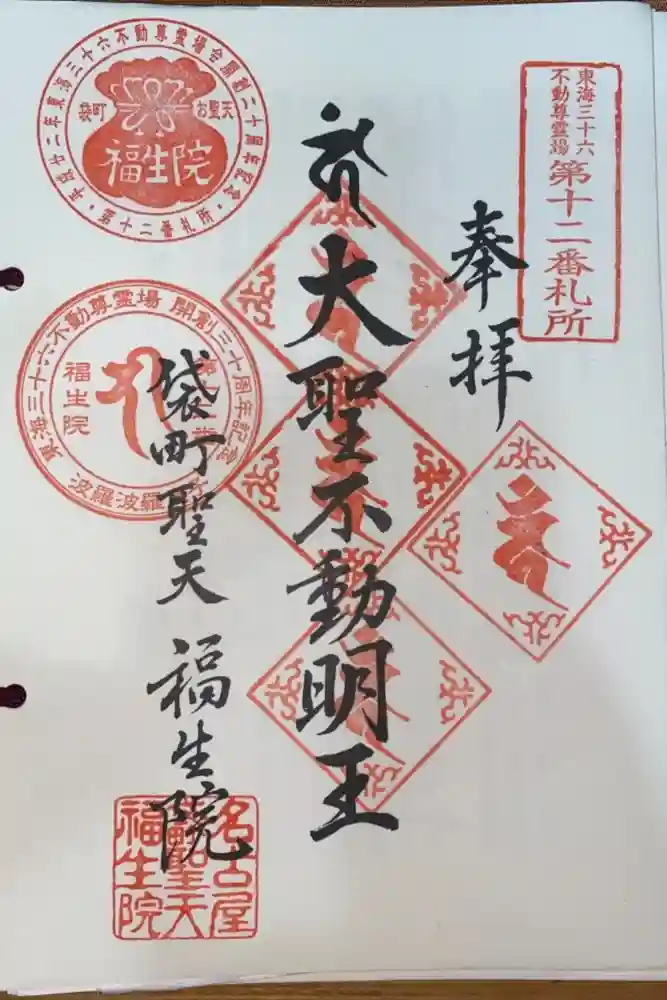 東海三十六
不動尊霊場
第十二番札所
奉拝
大聖不動明王
袋町聖天 福生院
平成廿二年東海三十六不動尊霊場会開創二十周年記念
第十二番札所
袋町
お聖天
福生院
東海三十六不動尊霊場 開創三十周年記念
福生院
波羅波羅
名古屋
聖天
福生院